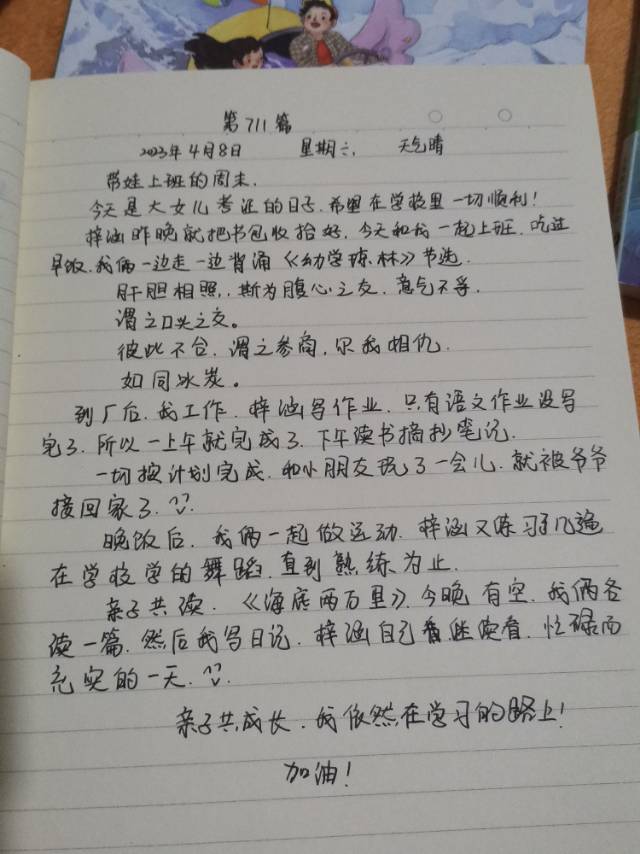 第711篇
2023年4月8日 星期六. 天气晴
带娃上班的周末.
今天是大女儿考证的日子.希望在学校里一切顺利!
梓涵昨晚就把书包收拾好.今天和我一起上班.吃过
早饭.我俩一边走一边背诵《幼学琼林》节选.
肝胆相照.斯为腹心之友.意气不孚.
谓之口头之交。
彼此不合.谓之参商.尔我相仇.
如同冰炭。
到厂后.我工作.梓涵写作业.只有语文作业没写
完了.所以一上午就完成了.下午读书摘抄笔记.
一切按计划完成.和小朋友玩了一会儿.就被爷爷
接回家了.
晚饭后.我俩一起做运动.梓涵又练习了几遍
在学校学的舞蹈.直到熟练为止.
亲子共读.《海底两万里》.今晚有空.我俩各
读一篇.然后我写日记.梓涵自己继续看.忙碌而
充实的一天.
亲子共成长.我依然在学习的路上!
加油!